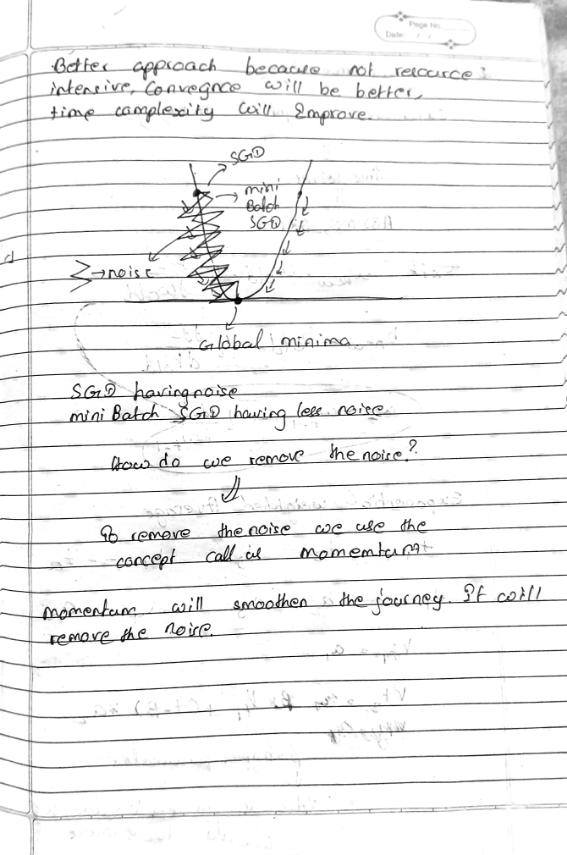 Page No.
Date: / /
Better approach because not resource
intensive, Convegnce will be better,
time complexity will Improve.
SGD
mini
Batch
SGD
→noise
Global minima
SGD having noise
mini Batch SGD having less noise
How do we remove the noise?
To remove the noise we use the
concept call as momemtum
momentum will smoothen the journey. It will
remove the noise.